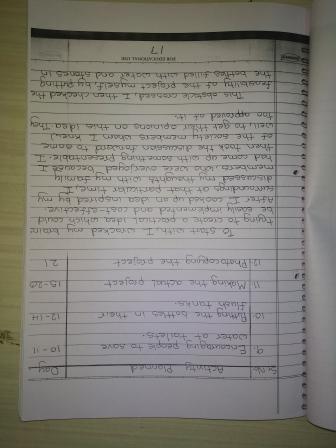 Sr.No. Activity Planned Day
9. Encouraging people to save 10-11
water at toilets.
10. Putting the bottles in their 12-14
flush tanks.
11. Making the actual project 15-20
12. Photocopying the project 21
To start with, I cracked my brain
trying to create a practical idea which could
be easily implemented and cost-effective.
After I cooked up an idea inspired by my
surroundings at that particular time, I
discussed my thoughts with my family
members, who were overjoyed because I
had come up with something presentable. I
then took the discussion forward to some
of the society members whom I knew
well, to get their opinions on this idea. They
too approved of it.
This obstacle crossed, I then checked the
feasibility of the project myself, by putting
the bottles filled with water and stones in
FOR EDUCATIONAL USE
17